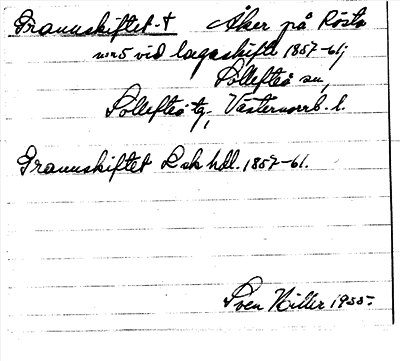 Grannskiftet † Åker på Rösta
nr 5 vid lagaskifte 1857-61;
Sollefteå sn,
Sollefteå tg, Västernorrl. l.
Grannskiftet L sk hdl. 1857-61.
Sven Hiller 1955.